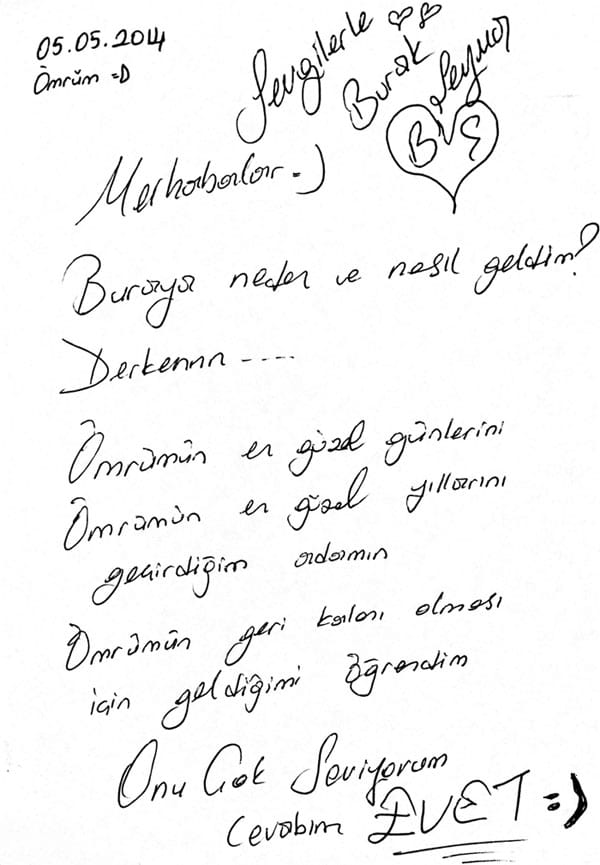 05.05.2014
Ömrüm =D
Sevgilerle
Burak
Seymor
B ve S
Merhabalar =)
Buraya neden ve nasıl geldim?
Derkennn ----
Ömrümün en güzel günlerini
Ömrümün en güzel yıllarını
geçirdiğim adamın
Ömrümün geri kalanı olması
için geldiğimi öğrendim
Onu Çok Seviyorum
Cevabım EVET =)